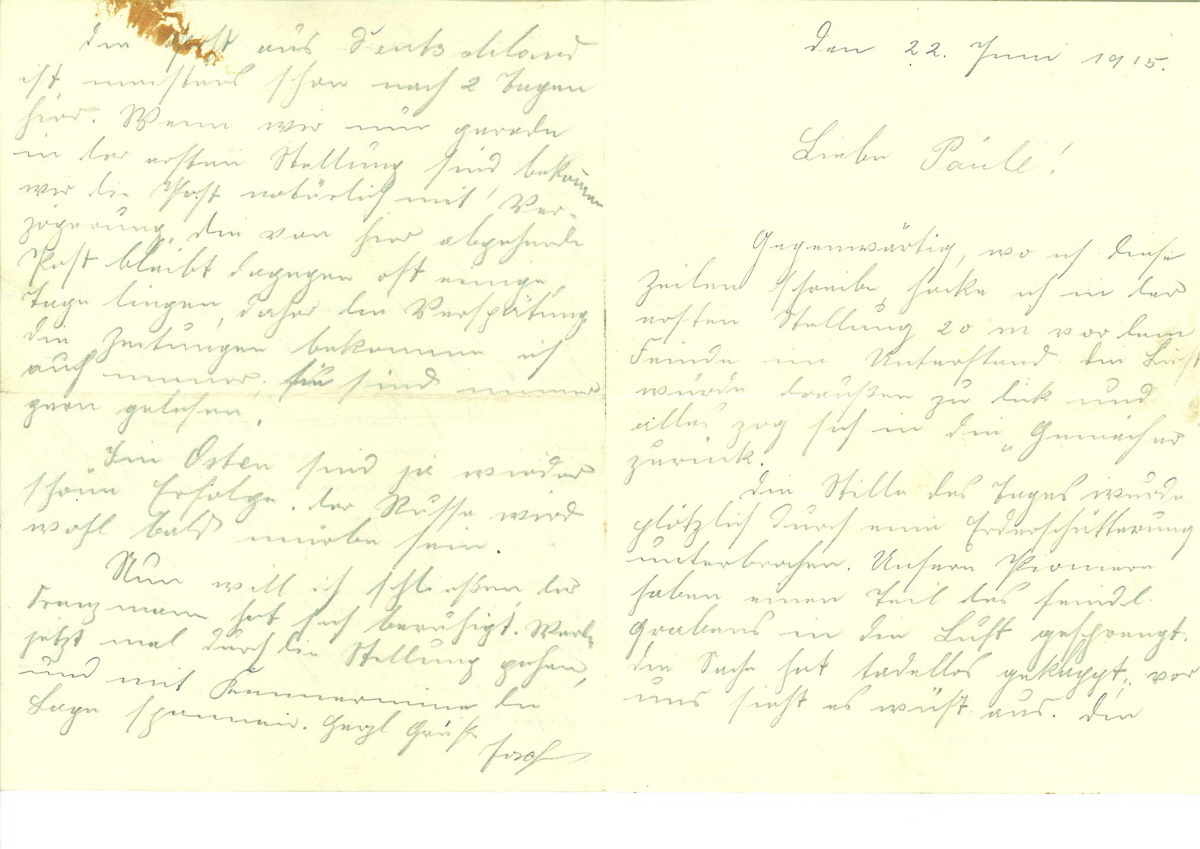 Den 22. Juni 1915.
Liebe Paule!
Gegenwärtig, wo ich diese
Zeilen schreibe, hocke ich in der
ersten Stellung 20 m vor dem
Feinde im Unterstand. Die Luft
wurde draußen zu dick und
alles zog sich in die „Gemächer
zurück.
Die Stille des Tages wurde
plötzlich durch eine Erderschütterung
unterbrochen. Unsere Pioniere
haben einen Teil des feindl.
Grabens in die Luft gesprengt.
Die Sache hat tadellos geklappt, vor
uns sieht es wüst aus. Die
Die Post aus Deutschland
ist meistens schon nach 2 Tagen
hier. Wenn wir nur gerade
in der ersten Stellung sind bekommen
wir die Post natürlich mit Ver-
zögerung, die von hier abgehende
Post bleibt dagegen oft einige
Tage liegen, daher die Verspätung
die Zeitungen bekomme ich
auch immer, sie sind immer
gern gelesen.
Im Osten sind ja wieder
schöne Erfolge. Der Russe wird
wohl bald mürbe sein.
Nun will ich schließen, der
Franzmann hat sich beruhigt. Werde
jetzt mal durch die Stellung gehen,
und mit Kennermiene die
Lage Herzl Grüße